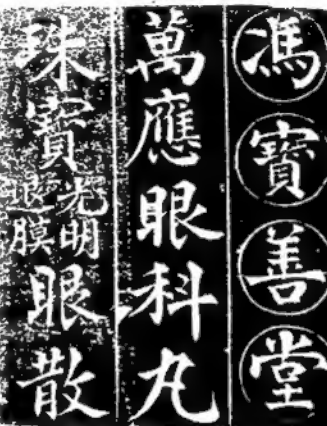 馮寶善堂
萬應眼科丸
珠寶光明眼膜眼散